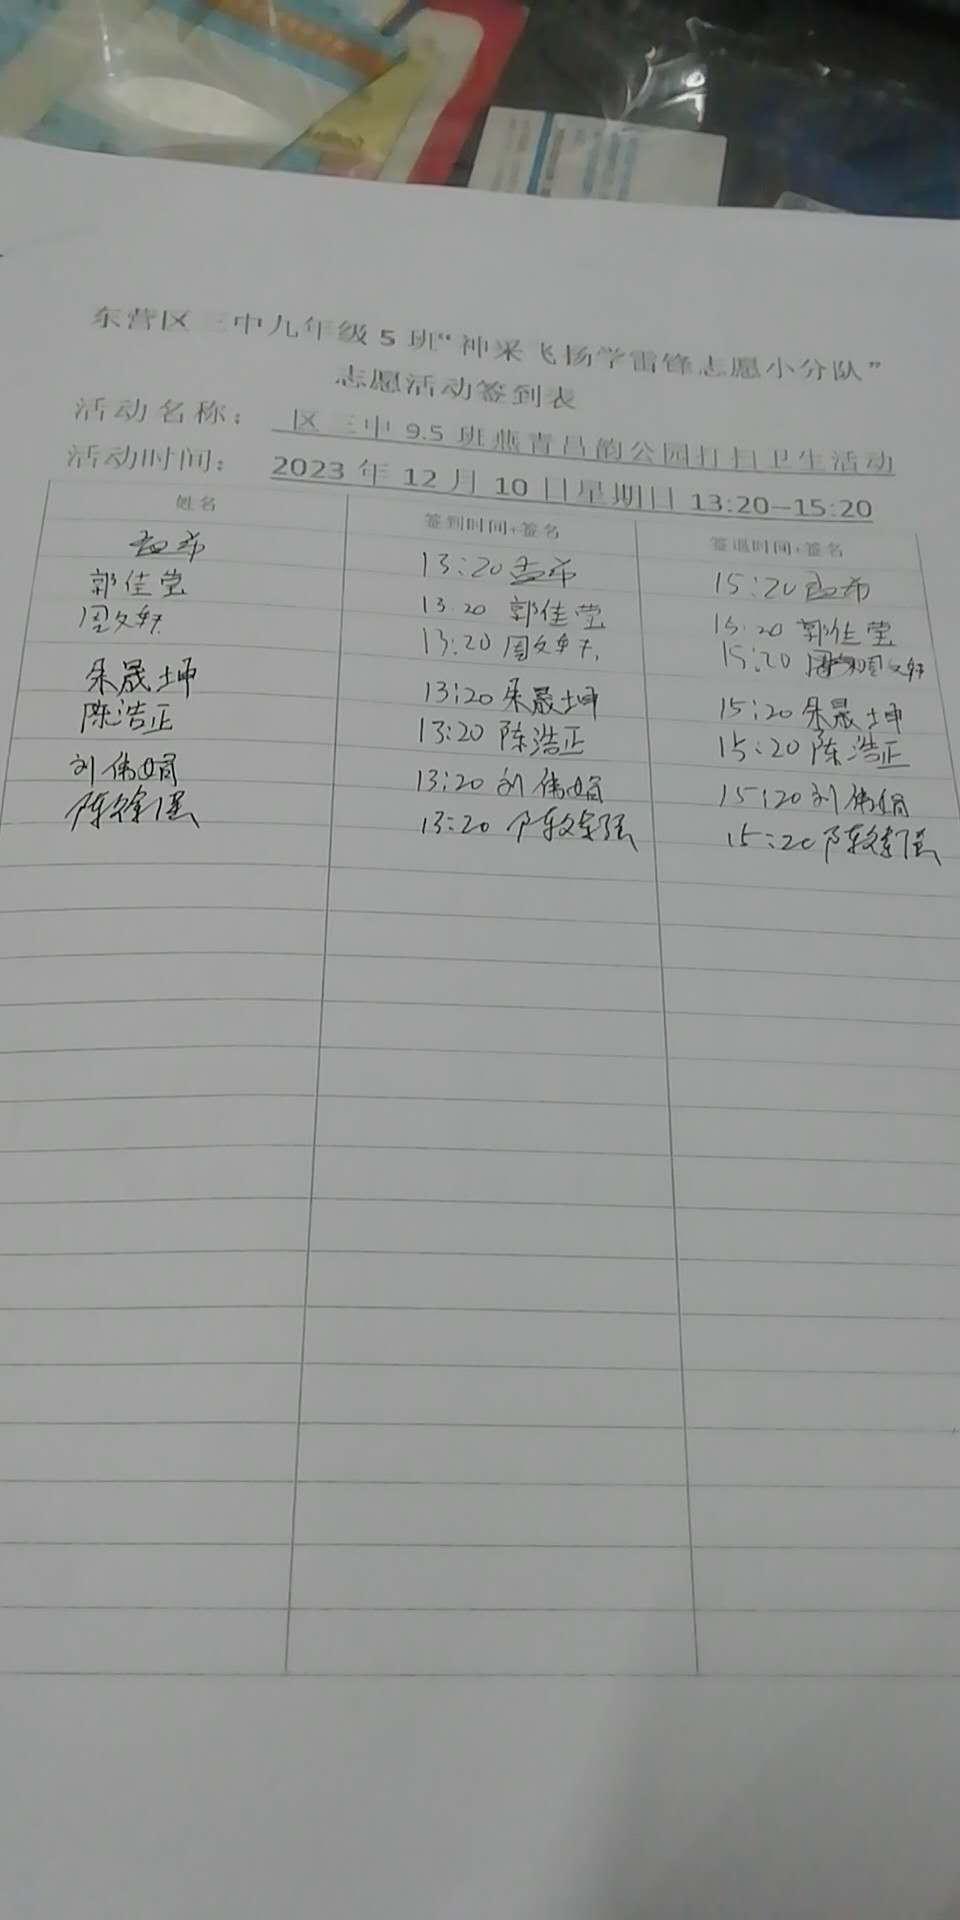 东营区三中九年级5班“神采飞扬学雷锋志愿小分队”
志愿活动签到表
活动名称： 区三中9.5班燕青昌韵公园打扫卫生活动
活动时间： 2023年12月10日星期日13:20—15:20
姓名 签到时间+签名 签退时间+签名
孟希 13:20 孟希 15:20 孟希
郭佳莹 13:20 郭佳莹 15:20 郭佳莹
周文轩 13:20 周文轩 15:20 周文轩
朱晟坤 13:20 朱晟坤 15:20 朱晟坤
陈浩正 13:20 陈浩正 15:20 陈浩正
刘伟娟 13:20 刘伟娟 15:20 刘伟娟
13:20 15:20